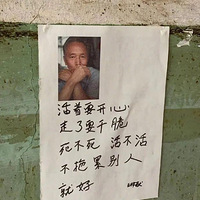 活着要开心
走了要干脆
死不死 活不活
不拖累别人
就好